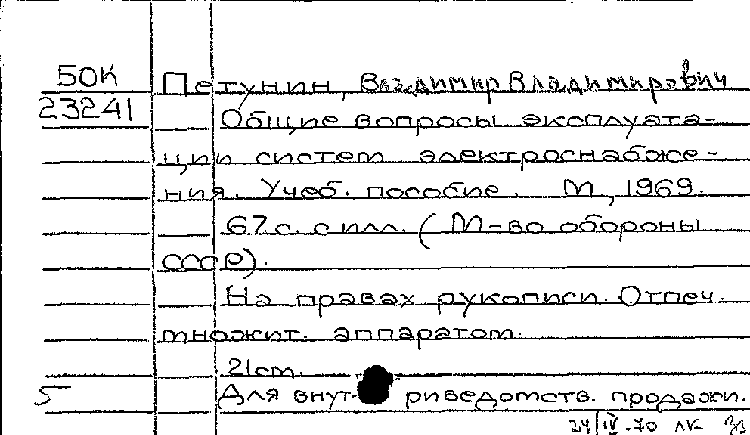 50К Петунин, Владимир Владимирович
23241 Общие вопросы эксплуата-
ции систем электроснабже-
ния. Учеб. пособие. М., 1969.
67 с. с илл. (М-во обороны
СССР).
На правах рукописи. Отпеч.
множит. аппаратом.
21 см.
5 Для внут-риведомств. продажи.
24/IV-70 ЛК